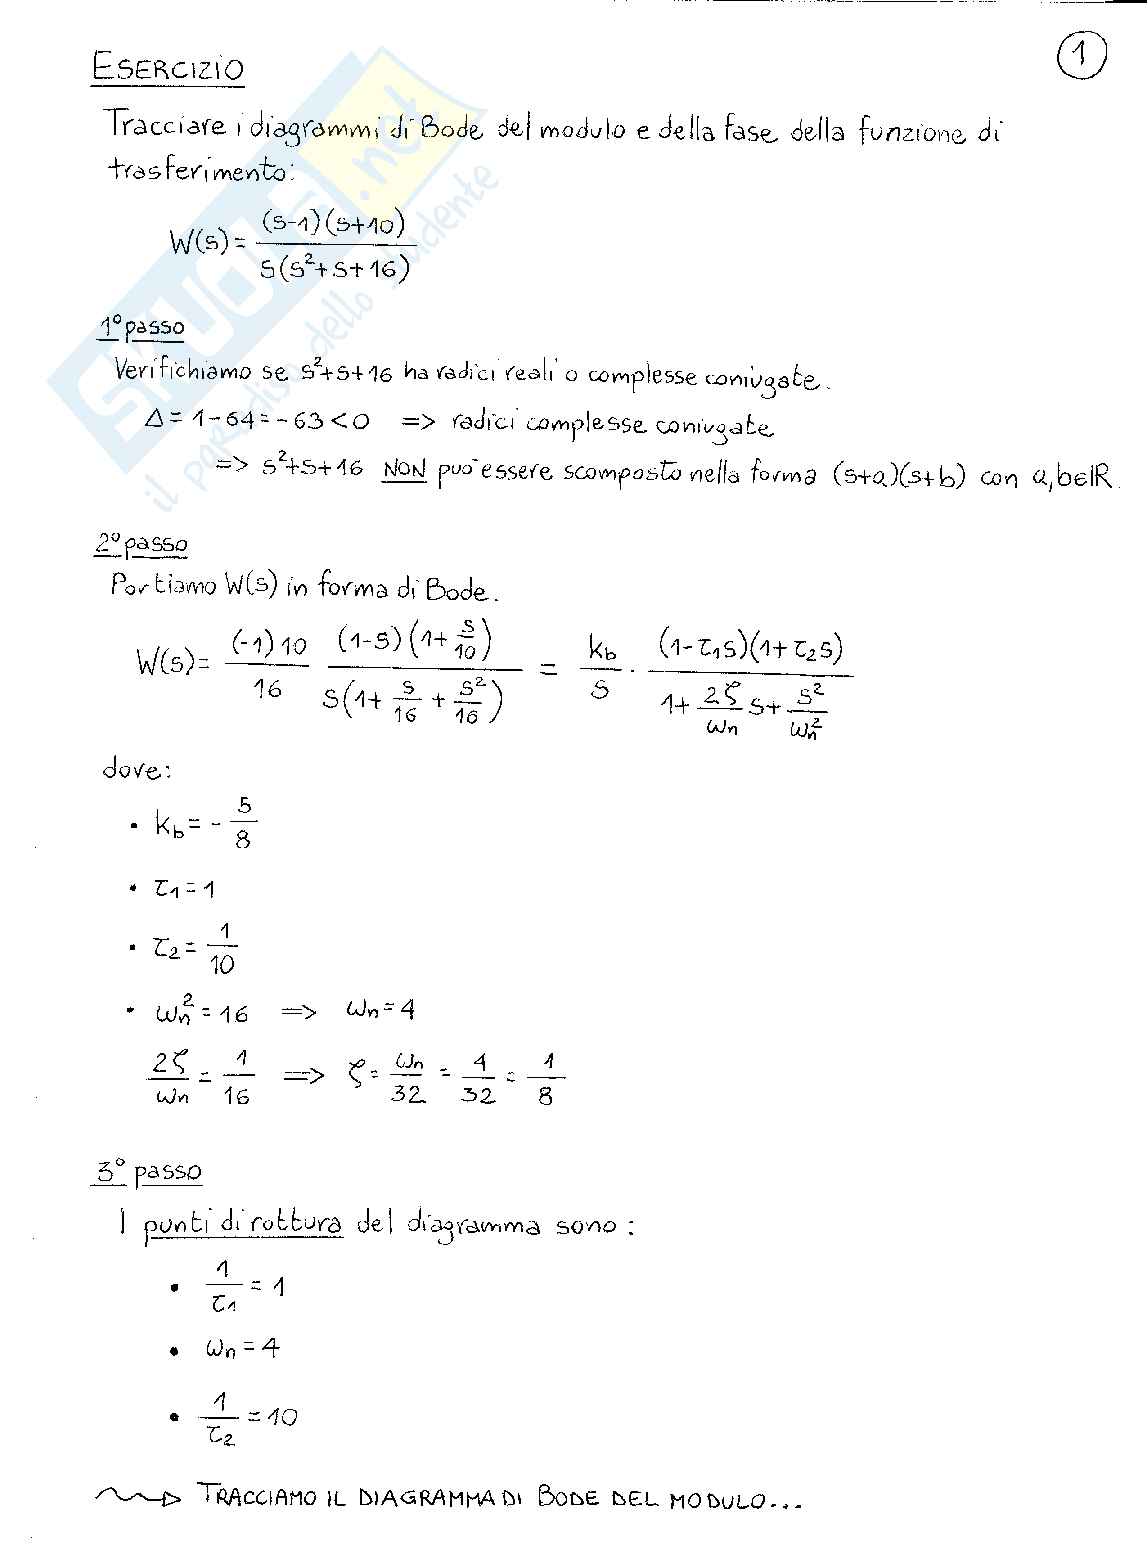 1
ESERCIZIO
Tracciare i diagrammi di Bode del modulo e della fase della funzione di
trasferimento:
W(s)= (s-1)(s+10) / s(s²+s+16)
1° passo
Verifichiamo se s²+s+16 ha radici reali o complesse coniugate.
Δ= 1-64=-63<0 => radici complesse coniugate
=> s²+s+16 NON può essere scomposto nella forma (s+a)(s+b) con a,b∈ℝ
2° passo
Portiamo W(s) in forma di Bode.
W(s)= (-1)10 / 16 (1-s)(1+ s/10) / s(1+ s/16 + s²/16) = kb / s · (1-τ1s)(1+τ2s) / 1+ 2ζ/ωn s+ s²/ωn²
dove:
• kb=- 5/8
• τ1=1
• τ2= 1/10
• ωn²=16 => ωn=4
2ζ/ωn = 1/16 => ζ= ωn/32 = 4/32 = 1/8
3° passo
I punti di rottura del diagramma sono :
• 1/τ1 = 1
• ωn=4
• 1/τ2 =10
TRACCIAMO IL DIAGRAMMA DI BODE DEL MODULO...
SKUOLA.net
il paradiso dello studente